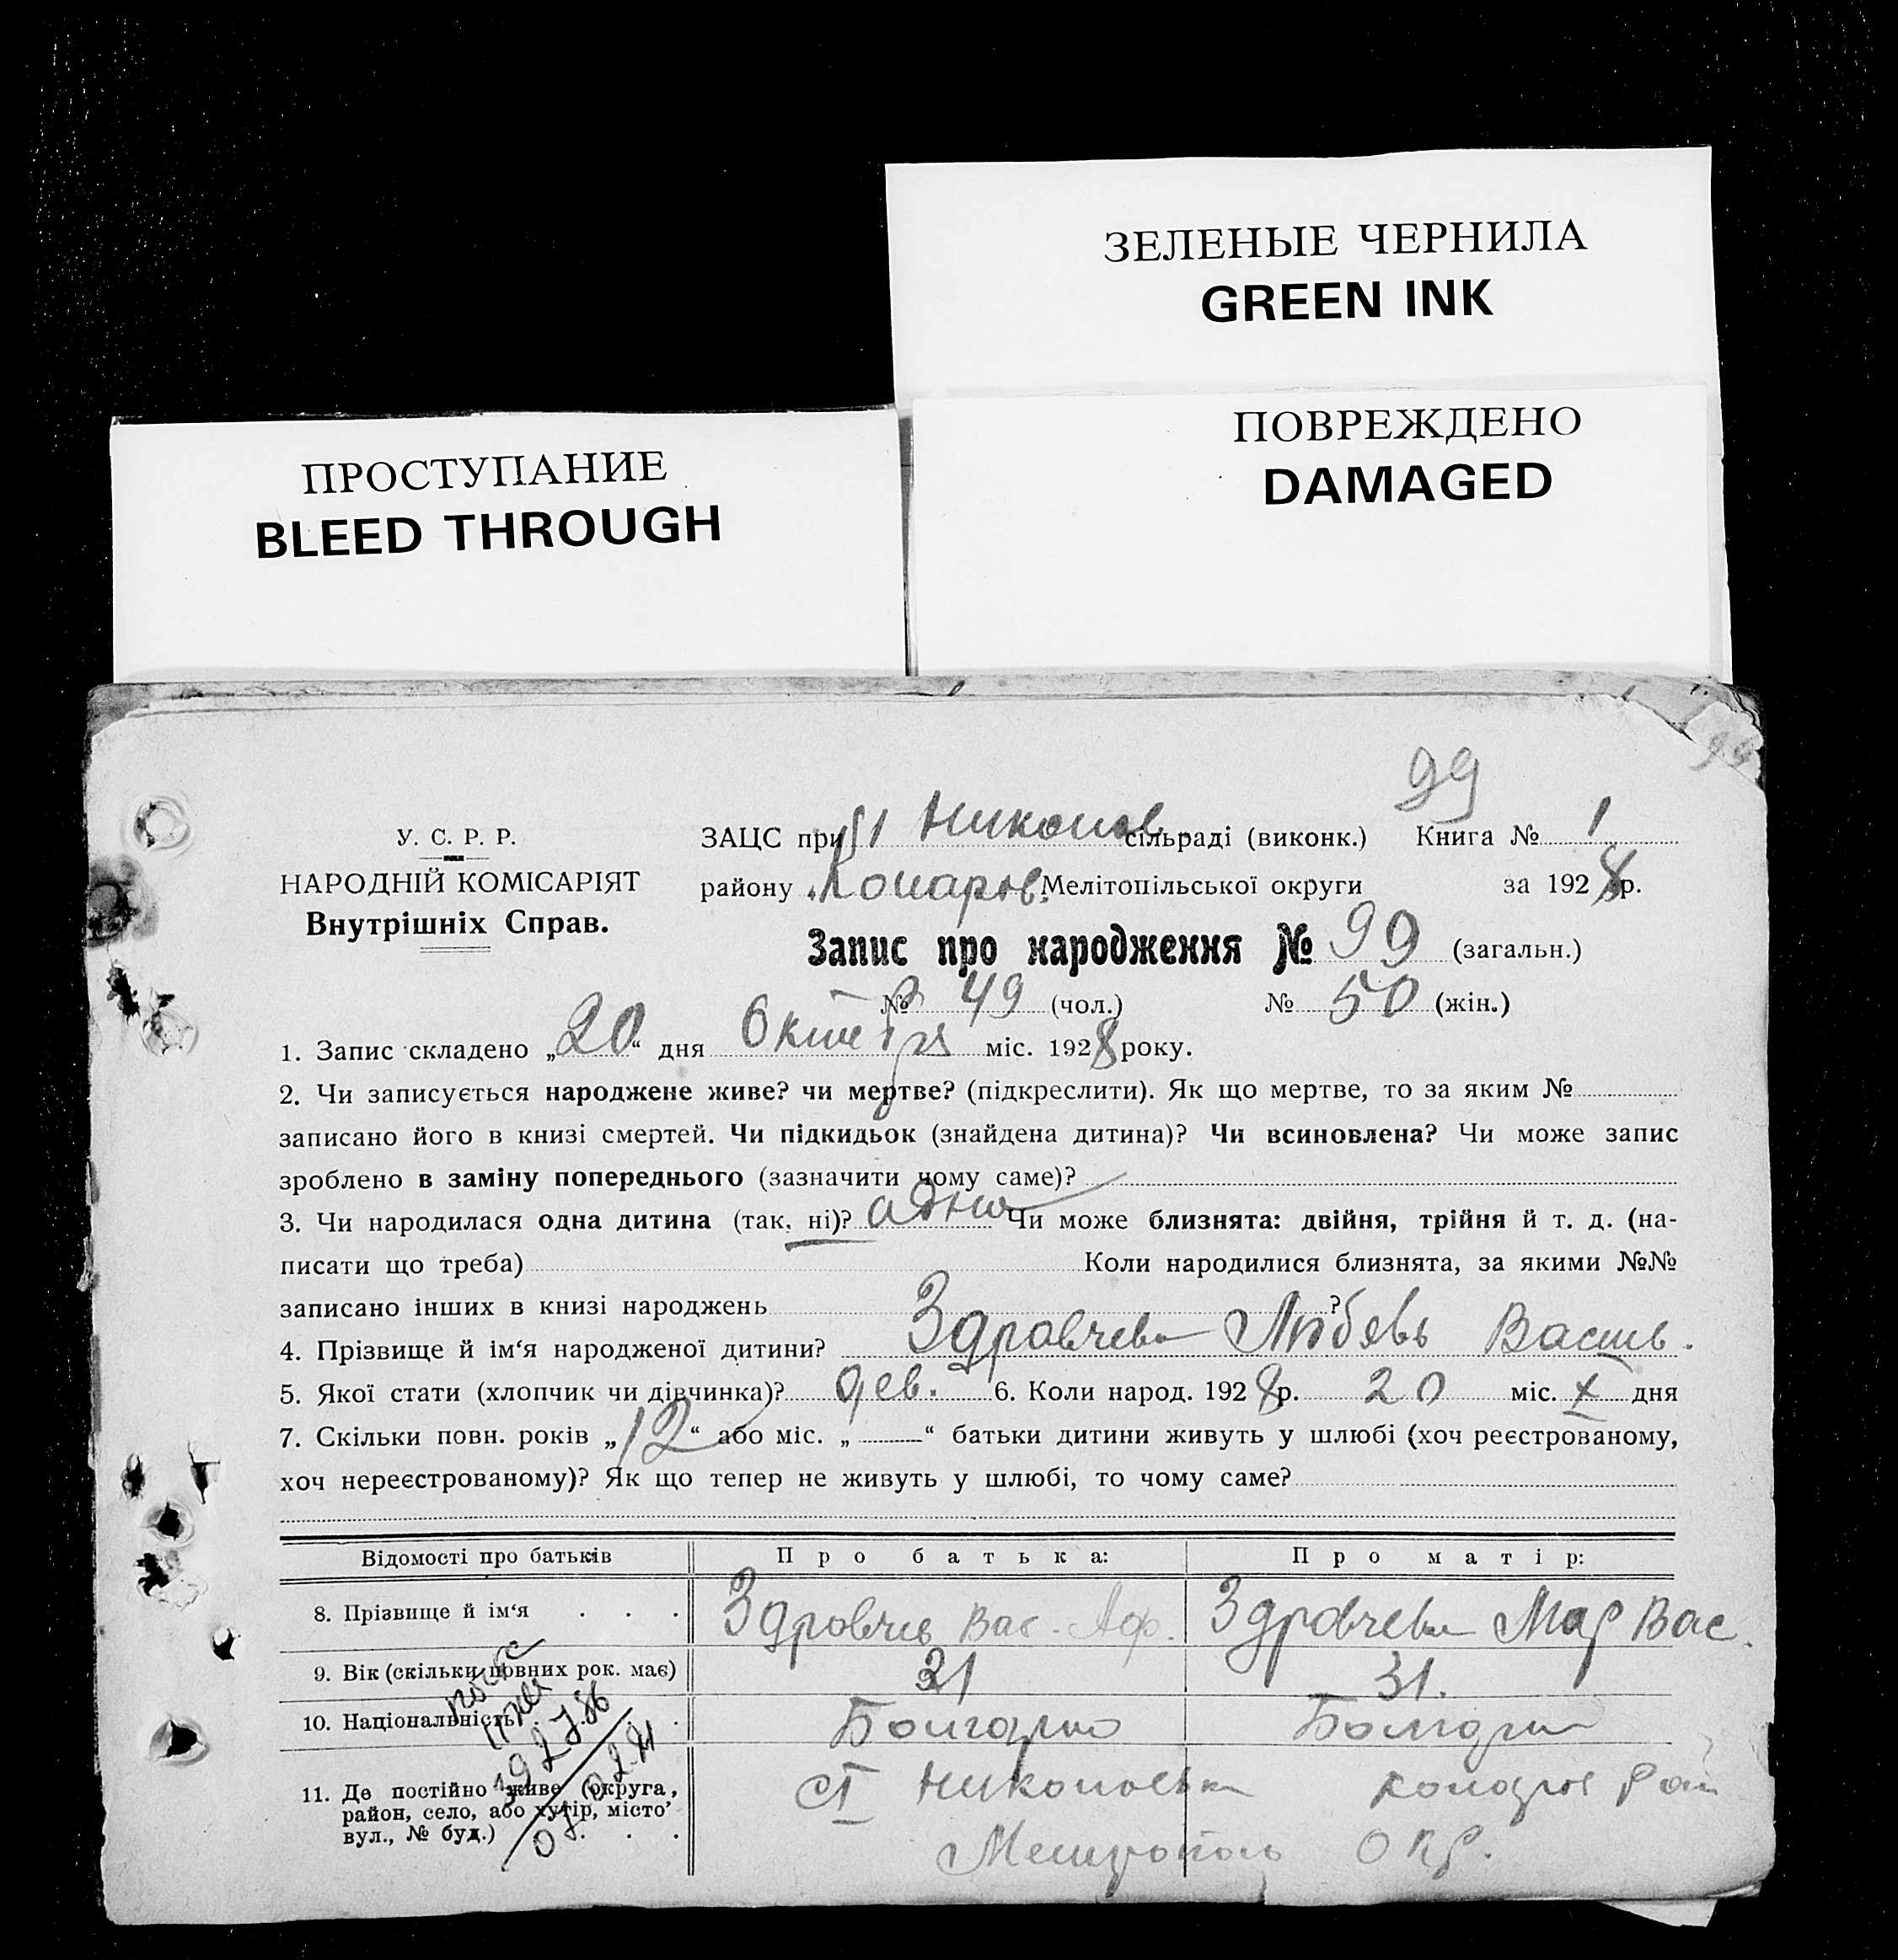 ЗЕЛЕНЫЕ ЧЕРНИЛА
GREEN INK
ПОВРЕЖДЕНО
DAMAGED
ПРОСТУПАНИЕ
BLEED THROUGH
99
У. С. Р. Р.
НАРОДНІЙ КОМІСАРІЯТ
Внутрішніх Справ.
ЗАЦС при Николаев. сільраді (виконк.) Книга № 1
району Коларов. Мелітопільської округи за 1928 р.
Запис про народження № 99 (загальн.)
№ 49 (чол.) № 50 (жін.)
1. Запис складено „20“ дня Октября міс. 1928 року.
2. Чи записується народжене живе? чи мертве? (підкреслити). Як що мертве, то за яким №
записано його в книзі смертей. Чи підкидьок (знайдена дитина)? Чи всиновлена? Чи може запис
зроблено в заміну попереднього (зазначити чому саме)?
3. Чи народилася одна дитина (так, ні)? одна Чи може близнята: двійня, трійня й т. д. (на-
писати що треба) Коли народилися близнята, за якими №№
записано інших в книзі народжень ?
4. Прізвище й ім‘я народженої дитини? Здравчева Любовь Василь.
5. Якої стати (хлопчик чи дівчинка)? дев. 6. Коли народ. 1928 р. 20 міс. X дня
7. Скільки повн. років „12“ або міс. „—“ батьки дитини живуть у шлюбі (хоч реєстрованому,
хоч нереєстрованому)? Як що тепер не живуть у шлюбі, то чому саме?
Відомості про батьків Про батька: Про матір:
8. Прізвище й ім‘я . . . Здравчев Вас. Аф. Здравчева Мар Вас.
9. Вік (скільки повних рок. має) 31 31.
10. Національність . . . Болгарин Болгарка
11. Де постійно живе (округа,
район, село, або хутір, місто
вул., № буд.) . . .
Коларов рай
Мелитополь Окр.